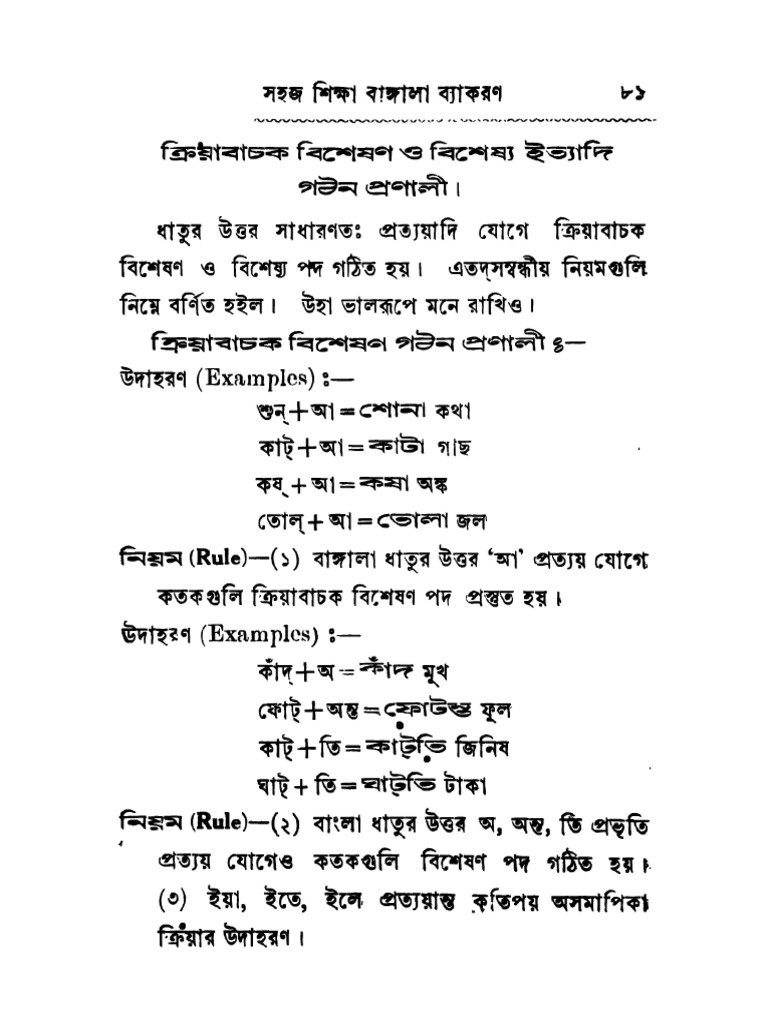 সহজ শিক্ষা বাঙ্গালা ব্যাকরণ ৮১
ক্রিয়াবাচক বিশেষণ ও বিশেষ্য ইত্যাদি
গঠন প্রণালী।
ধাতুর উত্তর সাধারণতঃ প্রত্যয়াদি যোগে ক্রিয়াবাচক
বিশেষণ ও বিশেষ্য পদ গঠিত হয়। এতদ্সম্বন্ধীয় নিয়মগুলি
নিম্নে বর্ণিত হইল। উহা ভালরূপে মনে রাখিও।
ক্রিয়াবাচক বিশেষণ গঠন প্রণালী ঃ—
উদাহরণ (Examples) ঃ—
শুন্+আ=শোনা কথা
কাট্+আ=কাটা গাছ
কষ্+আ=কষা অঙ্ক
তোল্+আ=তোলা জল
নিয়ম (Rule)—(১) বাঙ্গালা ধাতুর উত্তর ‘আ’ প্রত্যয় যোগে
কতকগুলি ক্রিয়াবাচক বিশেষণ পদ প্রস্তুত হয়।
উদাহরণ (Examples) ঃ—
কাঁদ্+অ=কাঁদ মুখ
ফোট্+অন্ত=ফোটন্ত ফুল
কাট্+তি=কাট্‌তি জিনিষ
ঘাট্+তি=ঘাট্‌তি টাকা
নিয়ম (Rule)—(২) বাংলা ধাতুর উত্তর অ, অন্ত, তি প্রভৃতি
প্রত্যয় যোগেও কতকগুলি বিশেষণ পদ গঠিত হয়।
(৩) ইয়া, ইতে, ইলে প্রত্যয়ান্ত কতিপয় অসমাপিকা
ক্রিয়ার উদাহরণ।